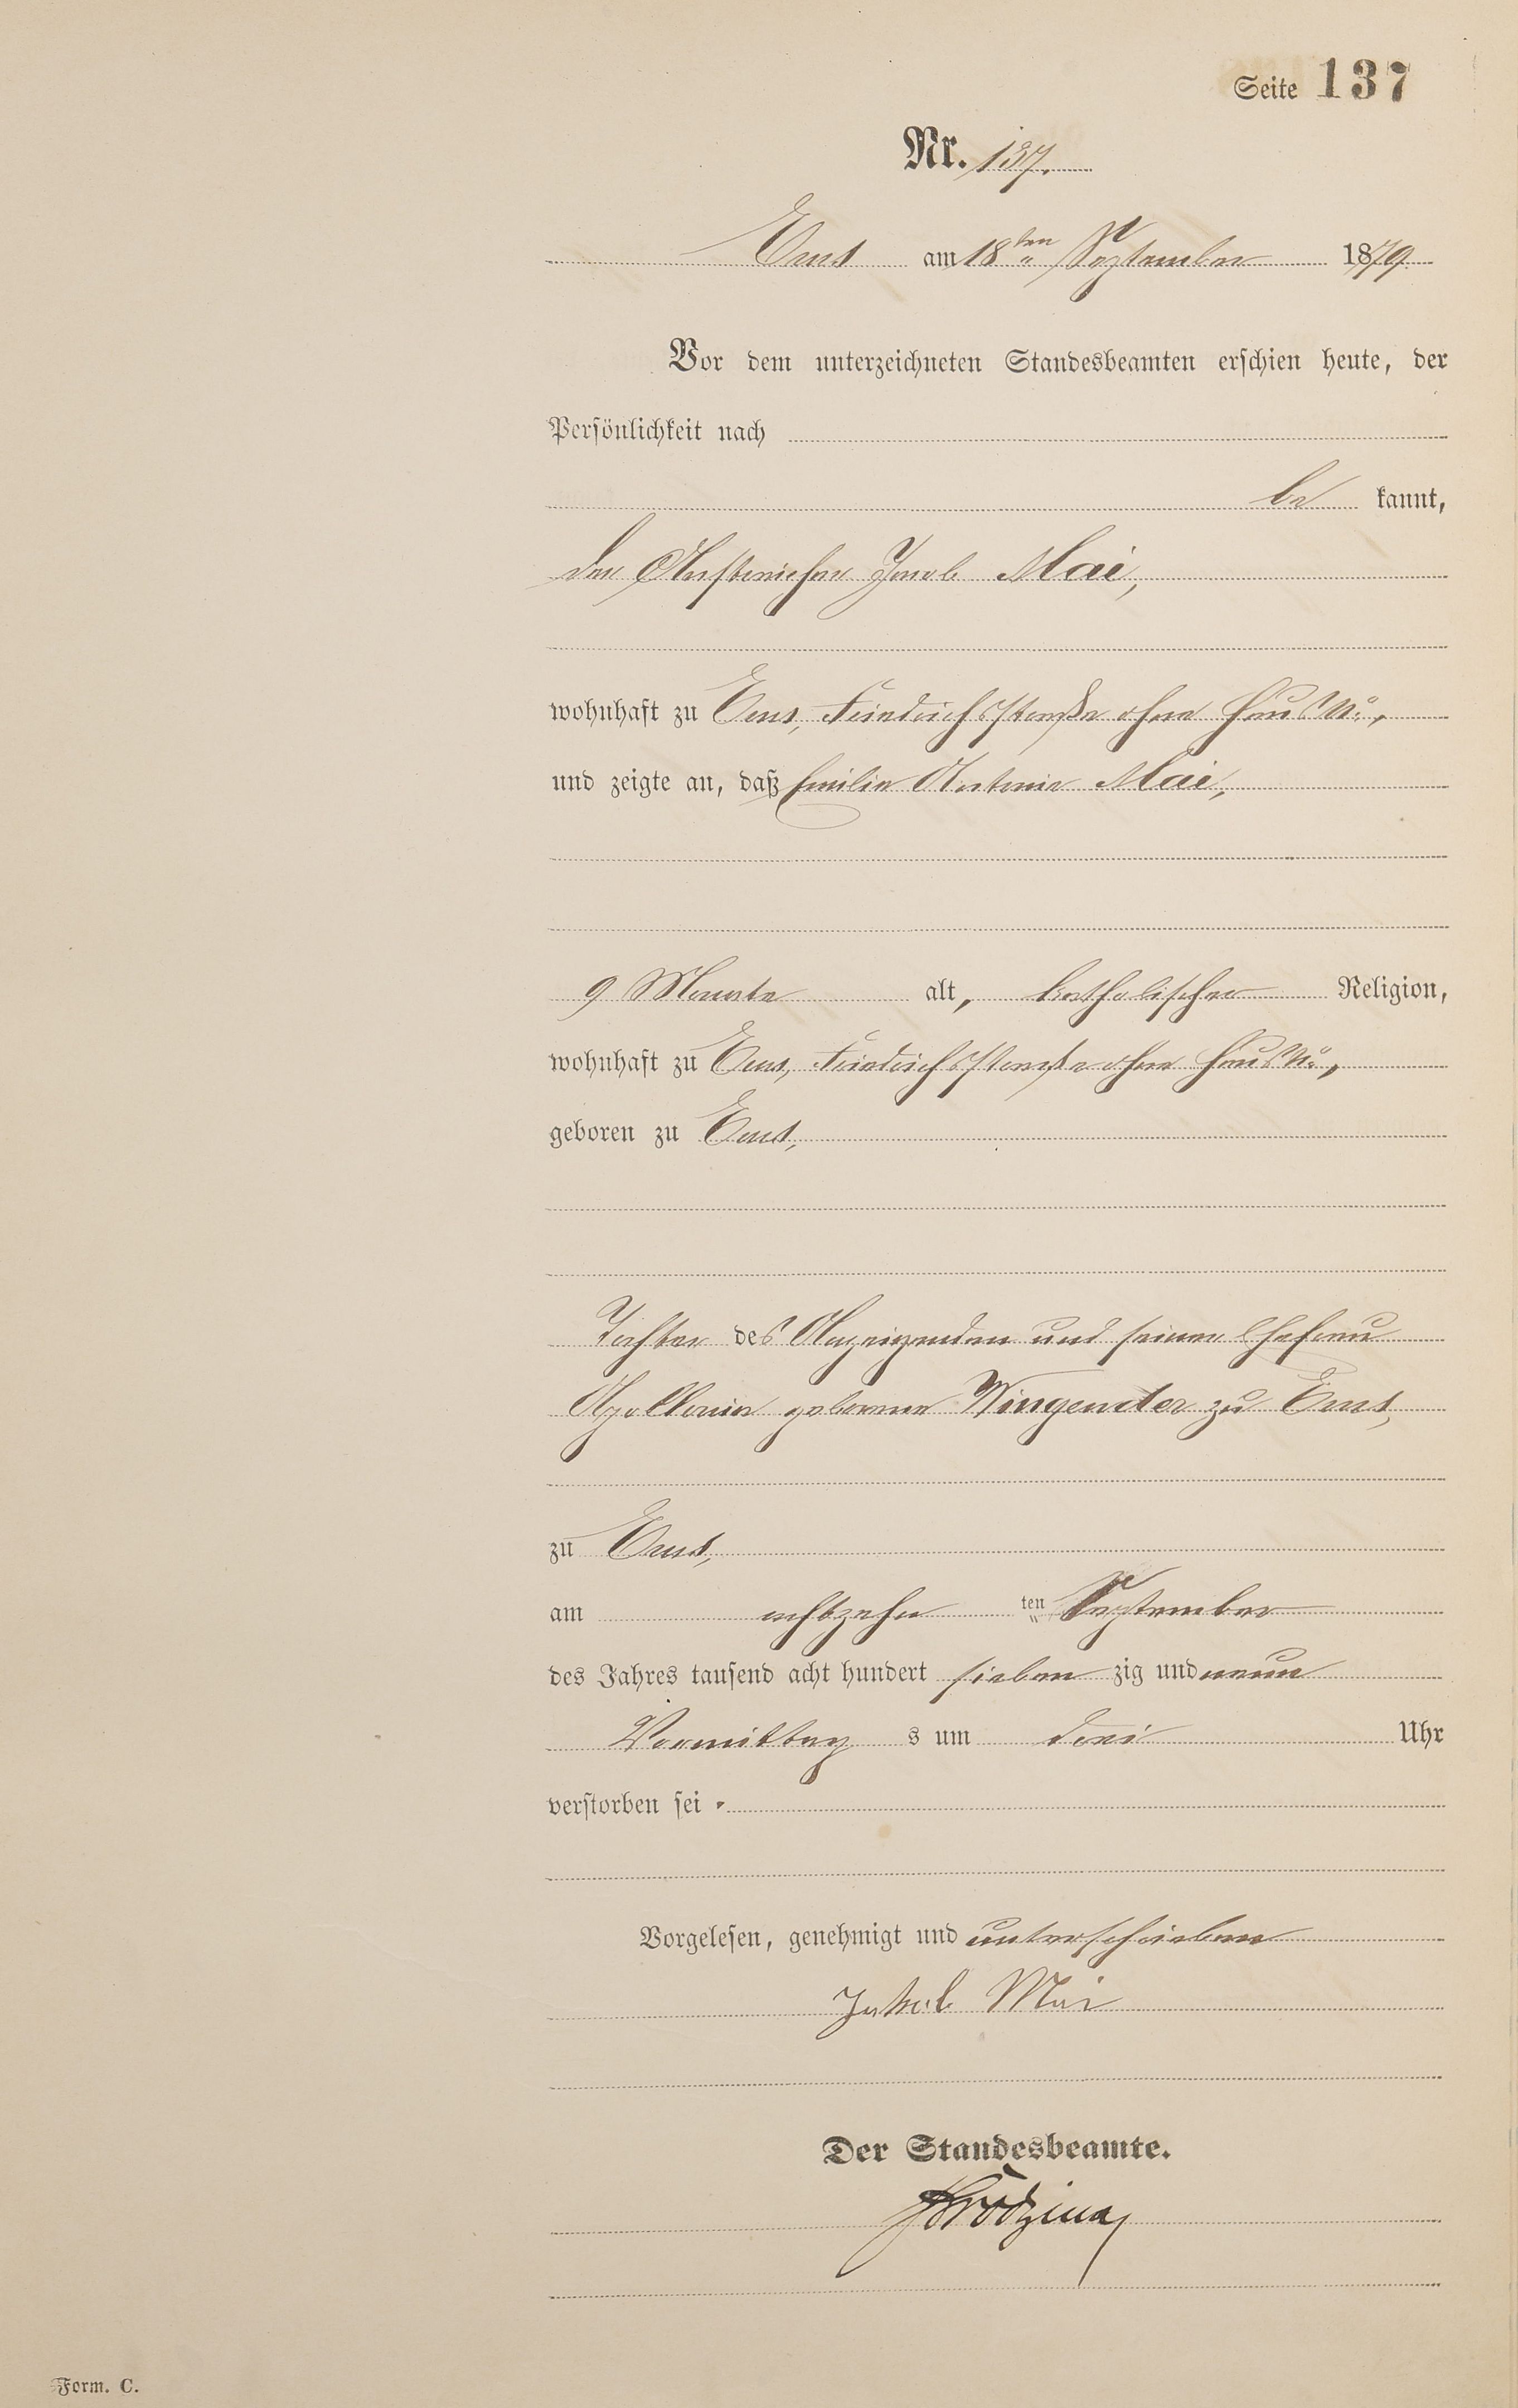 Seite 137
Nr. 137.
Ems am 18ten September 1879
Vor dem unterzeichneten Standesbeamten erschien heute, der
Persönlichkeit nach
be kannt,
der Anstreicher Jacob Mai,
wohnhaft zu Ems, Friedrichsstraße ohne Haus No,
und zeigte an, daß Emilie Antonie Mai,
9 Monate alt, katholischer Religion,
wohnhaft zu Ems, Friedrichsstraße ohne Haus No,
geboren zu Ems,
Tochter des Anzeigenden und seiner Ehefrau
Apollonia geborene Wingender zu Ems,
zu Ems,
am achtzehn ten September
des Jahres tausend acht hundert sieben zig und neun
Vormittag s um drei Uhr
verstorben sei.
Vorgelesen, genehmigt und unterschrieben
Jakob Mai
Der Standesbeamte.
Form. C.